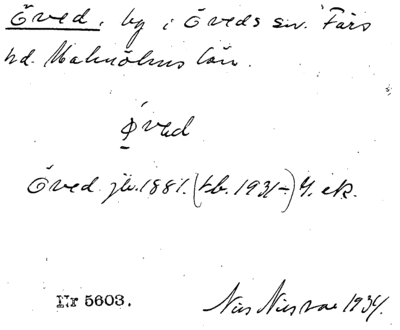 Öved, by i Öveds sn. Färs
hd. Malmöhus län.
Øved
Öved jb. 1881. (tb. 1931-) 4. ek.
Nr 5603.
Nils 1934.